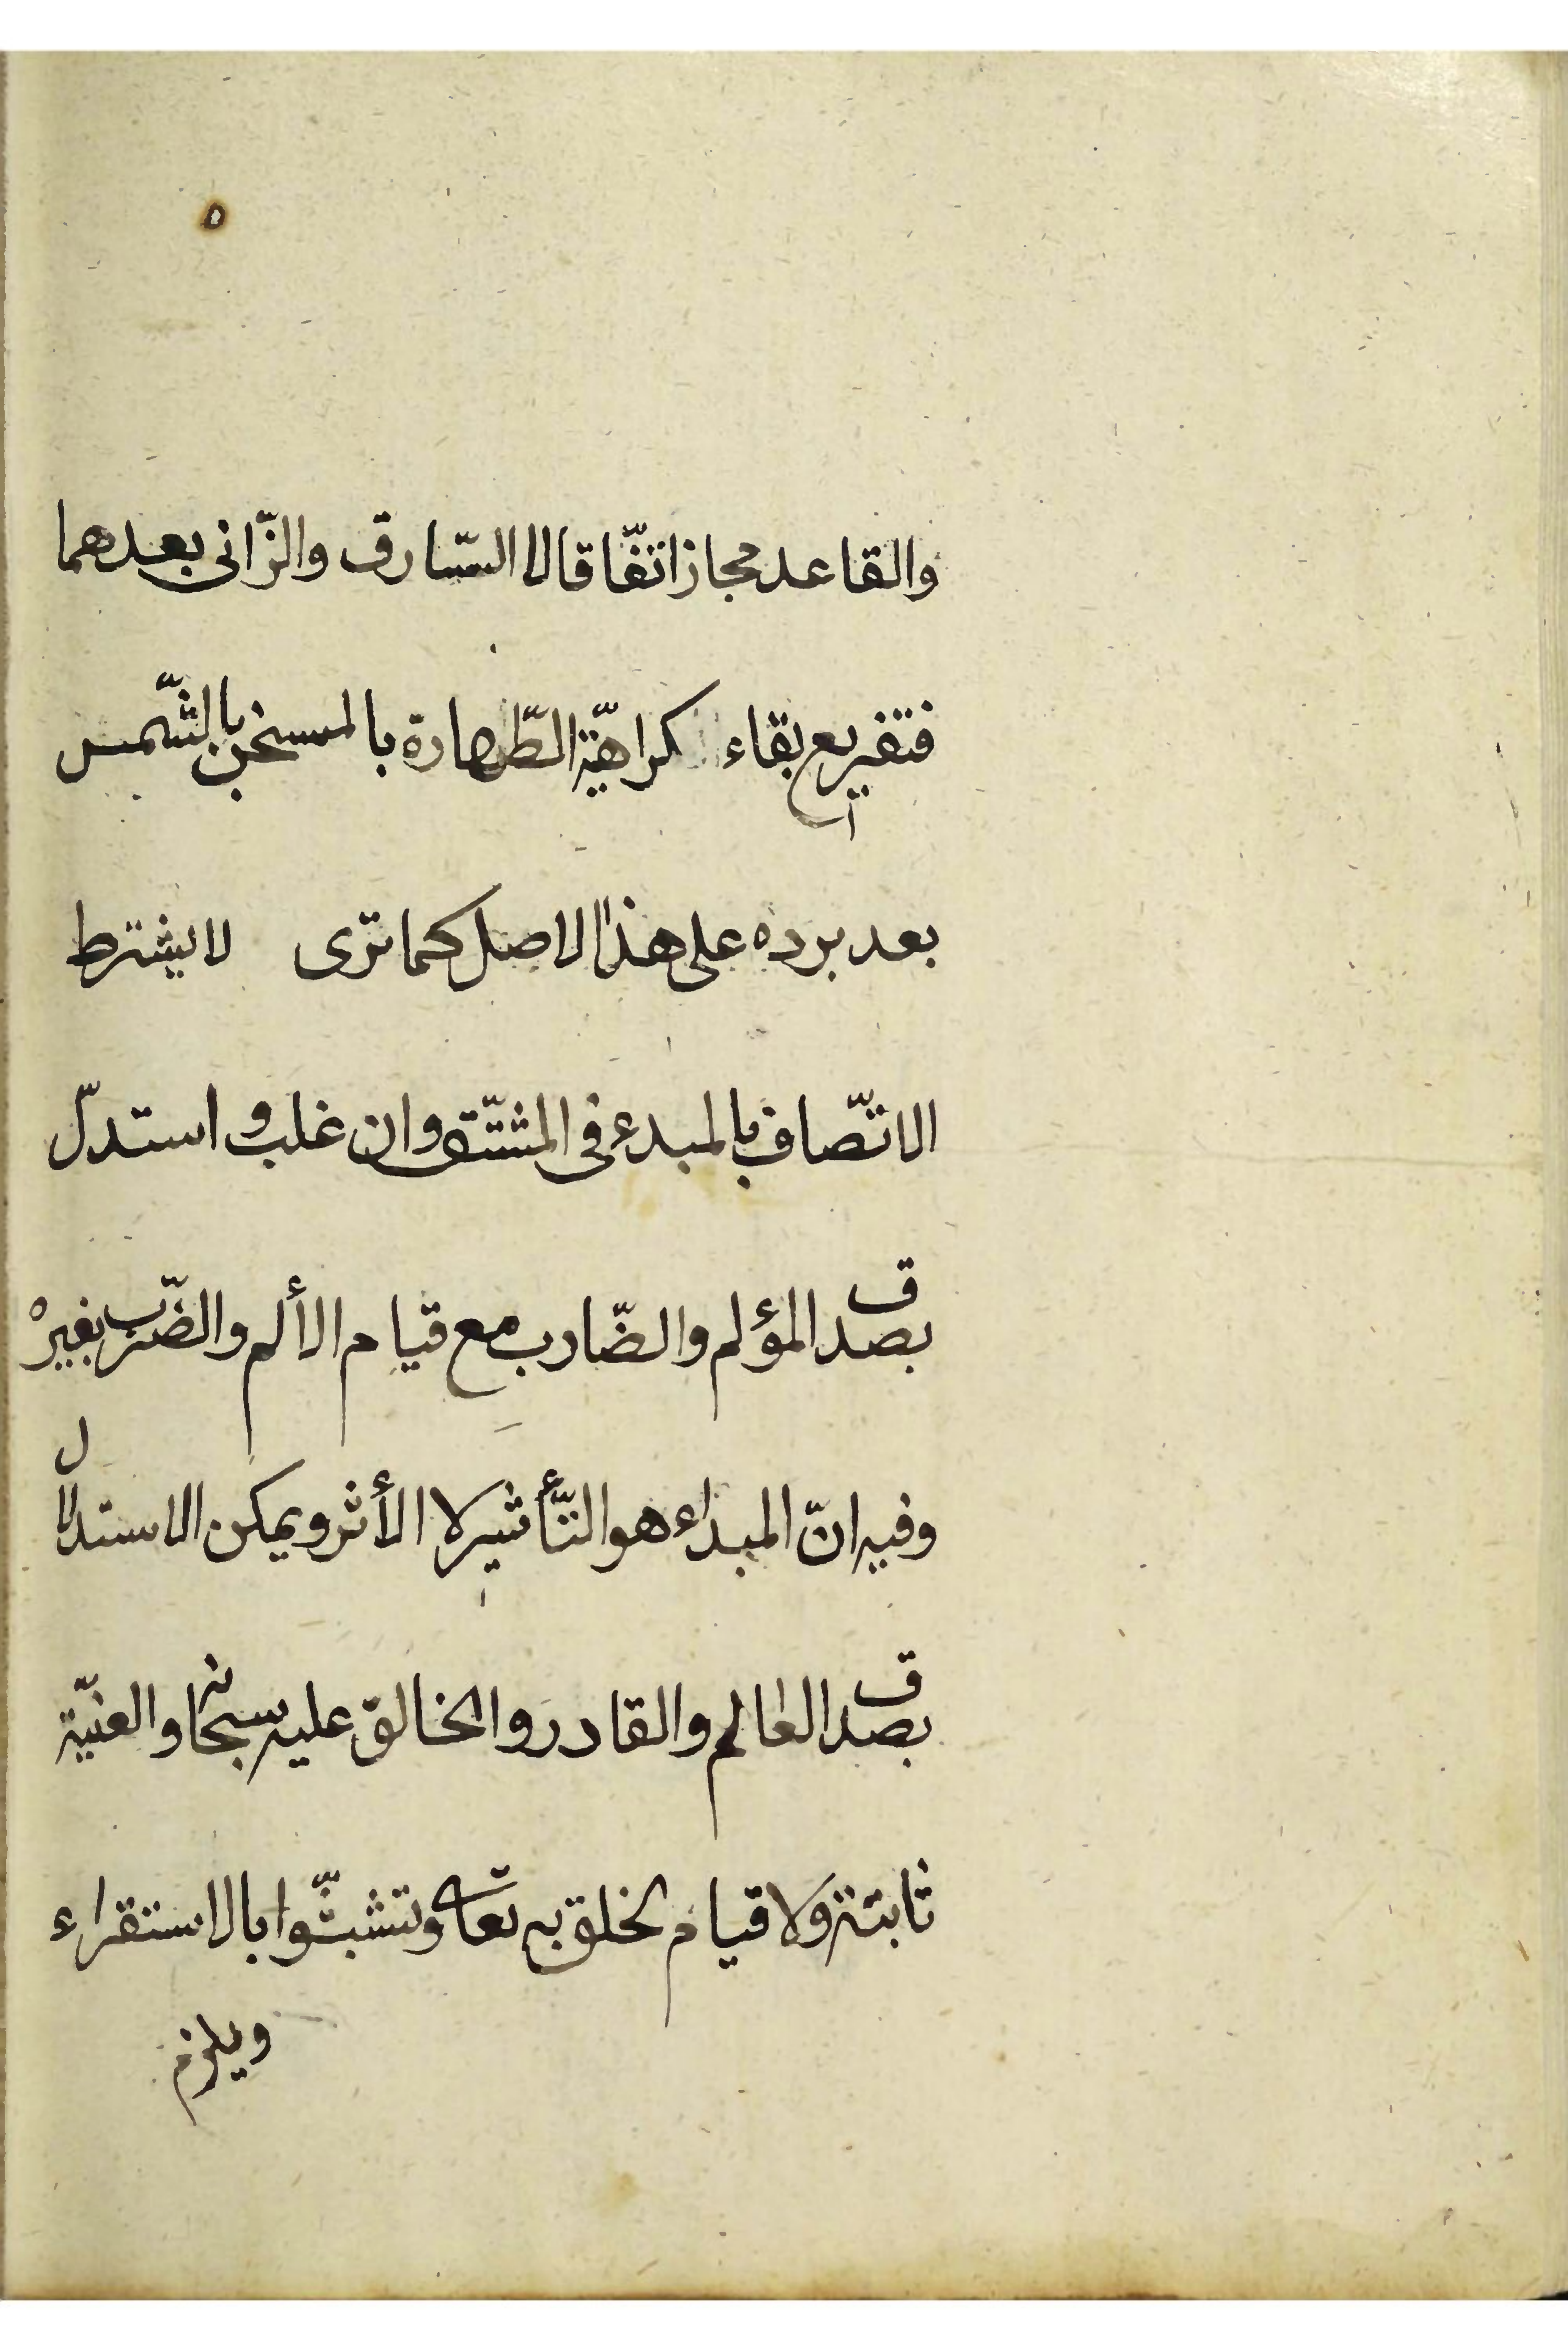 ٥
والقاعد مجاز اتفّاقا لا السّارق والزّانى بعدهما
فتفريع بقاء كراهيّة الطّهارة بالمسخن بالشّمس
بعد برده على هذا الاصل كما ترى لا يشترط
الاتّصاف بالمبدء فى المشتّق وان غلب و استدلّ
بصدق المؤلم والضّارب مع قيام الألم والضّرب بغيره
وفيه انّ المبداء هو التّأثير لا الأثر ويمكن الاستدلال
بصدق العالم والقادر والخالق عليه سبحانه والعنيّة
ثابتة ولا قيام لخلق به تعالى وتشبثّوا بالاستقراء
ويلزم